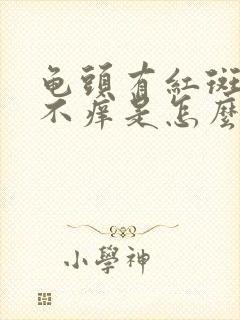 龟頭有紅斑
不痒是怎麼
小學神